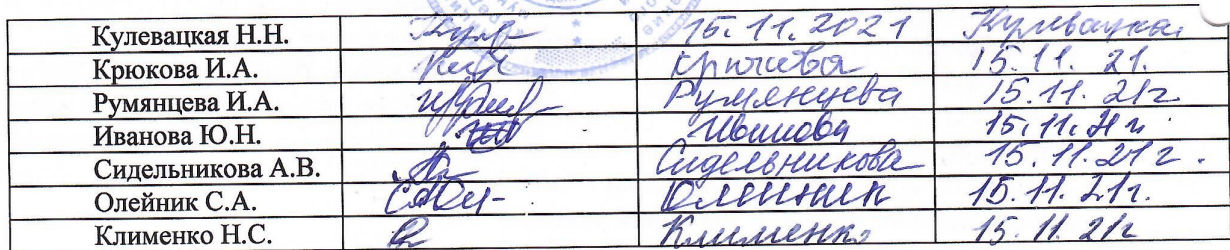 Кулевацкая Н.Н. 15.11.2021
Крюкова И.А. Крюкова 15.11.21.
Румянцева И.А. Румянцева 15.11.21г.
Иванова Ю.Н. Иванова 15.11.21г.
Сидельникова А.В. Сидельникова 15.11.21г.
Олейник С.А. Олейник 15.11.21г.
Клименко Н.С. Клименко 15.11.21г